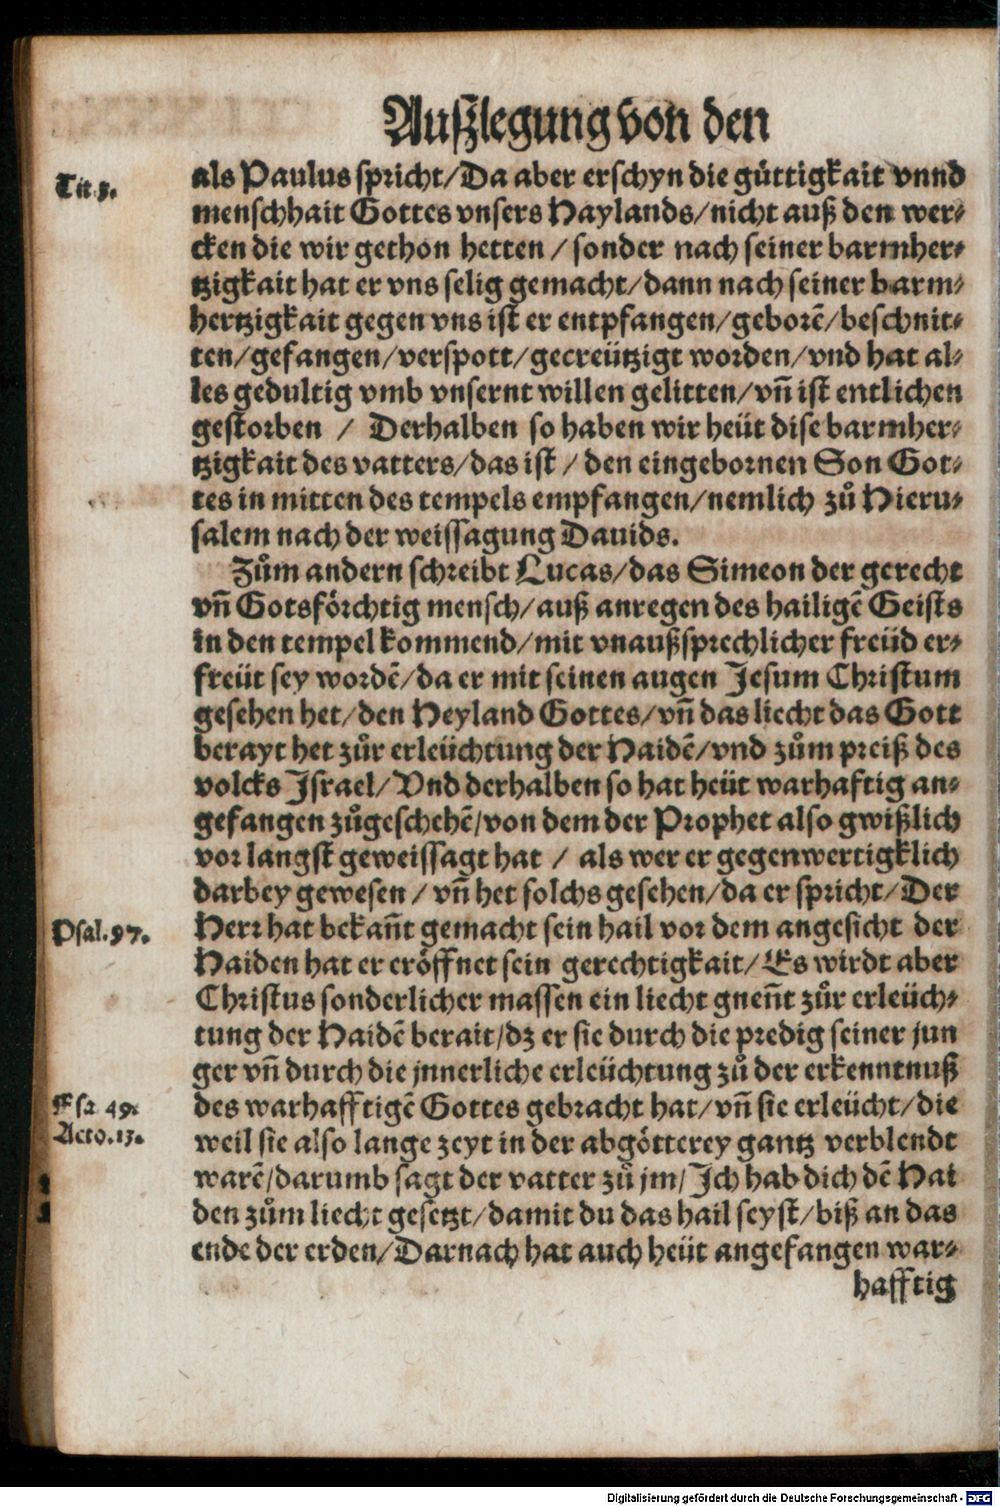 Außlegung von den
Tit. 3.
als Paulus spricht/ Da aber erschyn die güttigkait vnnd
menschhait Gottes vnsers Haylands/ nicht auß den wer-
cken die wir gethon hetten / sonder nach seiner barmher-
tzigkait hat er vns selig gemacht/ dann nach seiner barm-
hertzigkait gegen vns ist er entpfangen/ geborē/ beschnit-
ten/ gefangen/ verspott/ gecreützigt worden/ vnd hat al-
les gedultig vmb vnsernt willen gelitten/ vñ ist entlichen
gestorben / Derhalben so haben wir heüt dise barmher-
tzigkait des vatters/ das ist / den eingebornen Son Got-
tes in mitten des tempels empfangen/ nemlich zů Hieru-
salem nach der weissagung Dauids.
Zům andern schreibt Lucas/ das Simeon der gerecht
vñ Gotsförchtig mensch/ auß anregen des hailigē Geists
in den tempel kommend/ mit vnaußsprechlicher freüd er-
freüt sey wordē/ da er mit seinen augen Jesum Christum
gesehen het/ den Heyland Gottes/ vñ das liecht das Gott
berayt het zůr erleüchtung der Haidē/ vnd zům preiß des
volcks Israel/ Vnd derhalben so hat heüt warhaftig an-
gefangen zůgeschehē/ von dem der Prophet also gwißlich
vor langst geweissagt hat / als wer er gegenwertigklich
darbey gewesen / vñ het solchs gesehen/ da er spricht/ Der
Psal. 97.
Herr hat bekañt gemacht sein hail vor dem angesicht der
Haiden hat er eröffnet sein gerechtigkait/ Es wirdt aber
Christus sonderlicher massen ein liecht gneñt zůr erleüch-
tung der Haidē berait/ dz er sie durch die predig seiner jun
ger vñ durch die jnnerliche erleüchtung zů der erkenntnuß
Esa. 49.
des warhafftigē Gottes gebracht hat/ vñ sie erleücht/ die
Acto. 13.
weil sie also lange zeyt in der abgötterey gantz verblendt
warē/ darumb sagt der vatter zů jm/ Ich hab dich dē Hai
den zům liecht gesetzt/ damit du das hail seyst/ biß an das
ende der erden/ Darnach hat auch heüt angefangen war-
hafftig
Digitalisierung gefördert durch die Deutsche Forschungsgemeinschaft - DFG